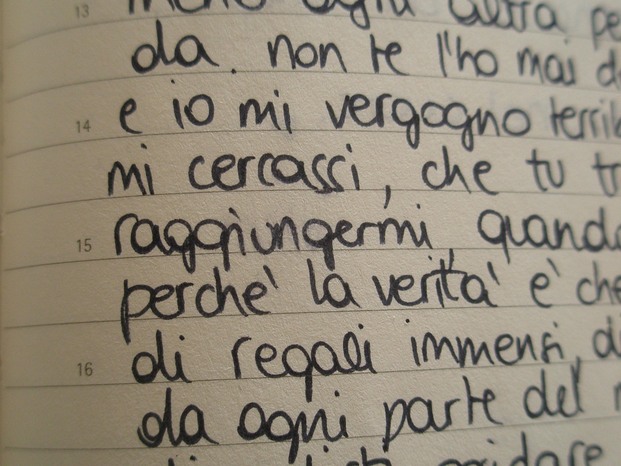 13 ogni altra pe
da. non te l'ho mai d
14 e io mi vergogno terrib
mi cercassi, che tu tr
15 raggiungermi, quando
perche' la verita' e' che
16 di regali immensi, di
da ogni parte del